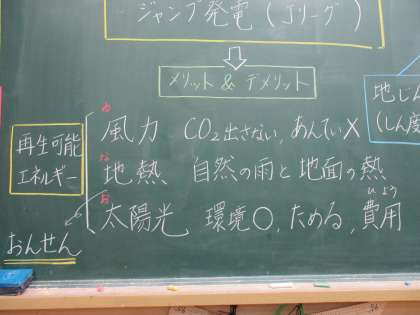 ジャンプ発電(Jリーグ)
メリット & デメリット
地じん
(しん度
再生可能
エネルギー
風力 CO2出さない,あんてい×
地熱 自然の雨と地面の熱
ひよう
太陽光 環境〇,ためる,費用
おんせん